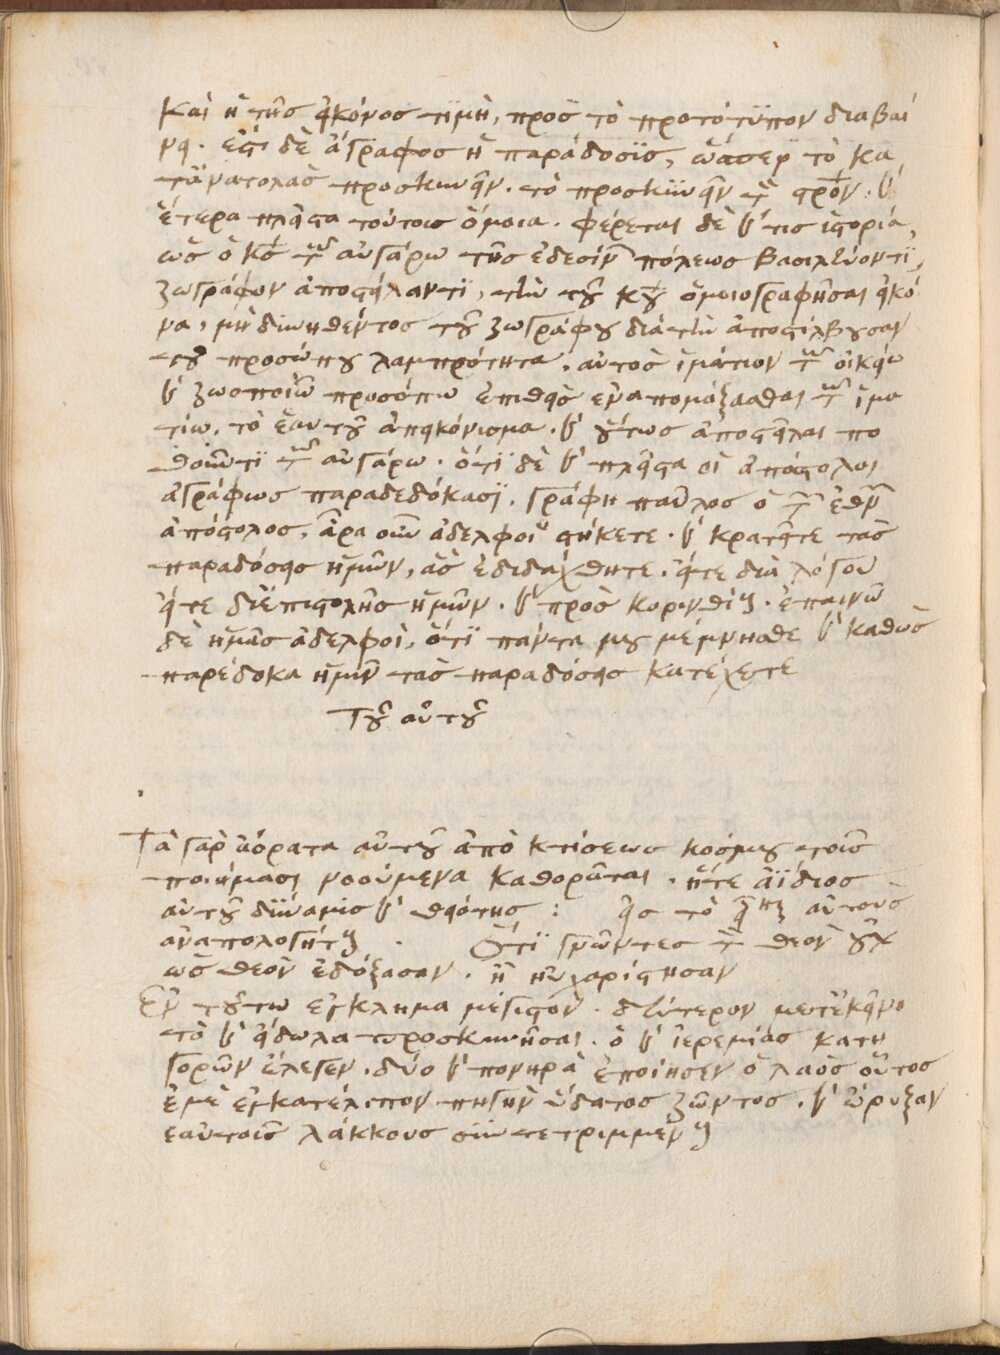 Καὶ ἡ τῆς εἰκόνος τιμὴ, πρὸς τὸ πρωτότϋπον διαβαί
νει. ἔστι δὲ ἄγραφος ἡ παράδοσϊς, ὥσπερ τὸ κα
τὰ ἀνατολὰς προσκυνεῖν. τὸ προσκϋνεῖν τὸν στρον. καὶ
ἕτερα πλεῖστα τούτοις ὅμοια. φέρεται δὲ καί τις ἱστορία,
ὡς ὁ κς τῶ αὐγάρω τῆς ἐδεσίν πόλεως βασιλεύοντϊ,
ζωγράφον ἀποστείλαντϊ, τὴν τοῦ κυ ὁμοιογραφῆσαι εἰκό
να, μὴ δυνηθέντος τοῦ ζωγράφου διὰ τὴν ἀποστίλβουσαν
τοῦ προσώπου λαμπρότητα, αὐτὸς ἱμάτιον τῶ οἰκείω
καὶ ζωοποιῶ προσόπω ἐπιθεὶς ἐναπομάξασθαι τῶ ἱμα
τίω, τὸ ἑαυτοῦ ἀπεικόνισμα. καὶ οὕτως ἀποστεῖλαι πο
θοῦντϊ τῶ αὐγάρω. ὅτϊ δὲ καὶ πλεῖστα οἱ ἀπόστολοι
ἀγράφως παραδεδόκασϊ. γράφη παῦλος ὁ τῶν ἐθν
ἀπόστολος, ἆρα οὖν ἀδελφοὶ στήκετε. καὶ κρατεῖτε τὰς
παραδόσεις ἡμῶν, ἃς ἐδιδάχθητε. εἴτε διὰ λόγου
εἴτε διἐπιστολῆς ἡμῶν. καὶ πρὸς κορινθίους. ἐπαινῶ
δὲ ἡμᾶς ἀδελφοὶ, ὅτϊ πάντα μου μέμνησθε καὶ καθὼς
παρέδοκα ἡμῖν τὰς παραδόσεις κατέχετε
Τοῦ αὐτοῦ
Τὰ γὰρ ἀόρατα αὐτοῦ ἀπὸ κτίσεως κόσμου τοῖς
ποιήμασι νοούμενα καθορᾶται. ἥτε ἀΐδιος
αὐτοῦ δϋναμις καὶ θειότης : εἰς τὸ εἶναι αὐτοὺς
ἀναπολογήτους. Ὅτϊ γνῶντες τὸν θεὸν οὐχ
ὡς θεὸν ἐδόξασαν. ἢ ηὐχαρίστησαν
Ἐν τούτω ἔγκλημα μέγιστον. δεύτερον μετἐκεῖνο
τὸ καὶ εἴδωλα προσκυνῆσαι. ὃ καὶ ἱερεμίας κατη
γορῶν ἔλεγεν. δύο καὶ πονηρὰ ἐποίησεν ὁ λαὸς οὗτος
ἐμὲ ἐγκατέλιπον πηγὴν ὕδατος ζῶντος. καὶ ὤρυξαν
ἑαυτοῖς λάκκους συντετριμμένους